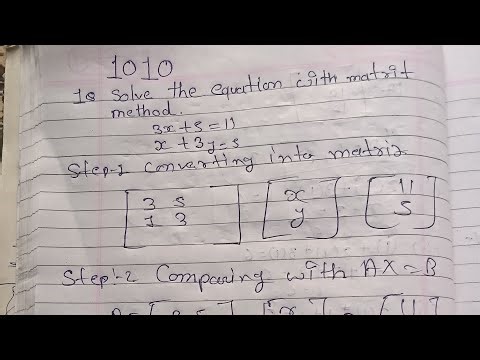 1010
1Q Solve the equation with matrix
method.
3x+5=11
x+3y=5
Step-1 Converting into matrix
[3 5 [x [11
1 3] y] 5]
Step:-2 Comparing with AX=B